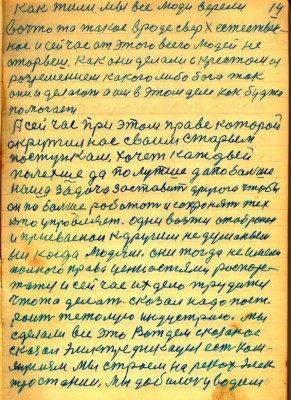 как жили мы все люди верели 19
во что та такое вроде сверхестествен-
ное и сейчас от этого всего людей не
оторвеш. Как они делали с крестом и
розрешением какого либо бога так
они и делают а им в этом деле как будто
помогает
А сейчас при этом праве которой
окрутил нас своим старым
поступкам, хочет каждый
полехше да полутше да побалше
наша задача заставит другога чтобы
он по балше роботот и сохронят тех
кто упровляет. одни вожжи
и к другим не душевным
ни когда людям. они тогда не имели
такого права ценностями роспоре-
жату и сейчас их дело трудиту
что то делат. сказал надо пост-
роит тежолую индустрию. мы
сделали все это Вождем сказаное
сказал Электредикацыя ест ком-
мунизм мы строем на реках Элек
тростанции. мы добилису